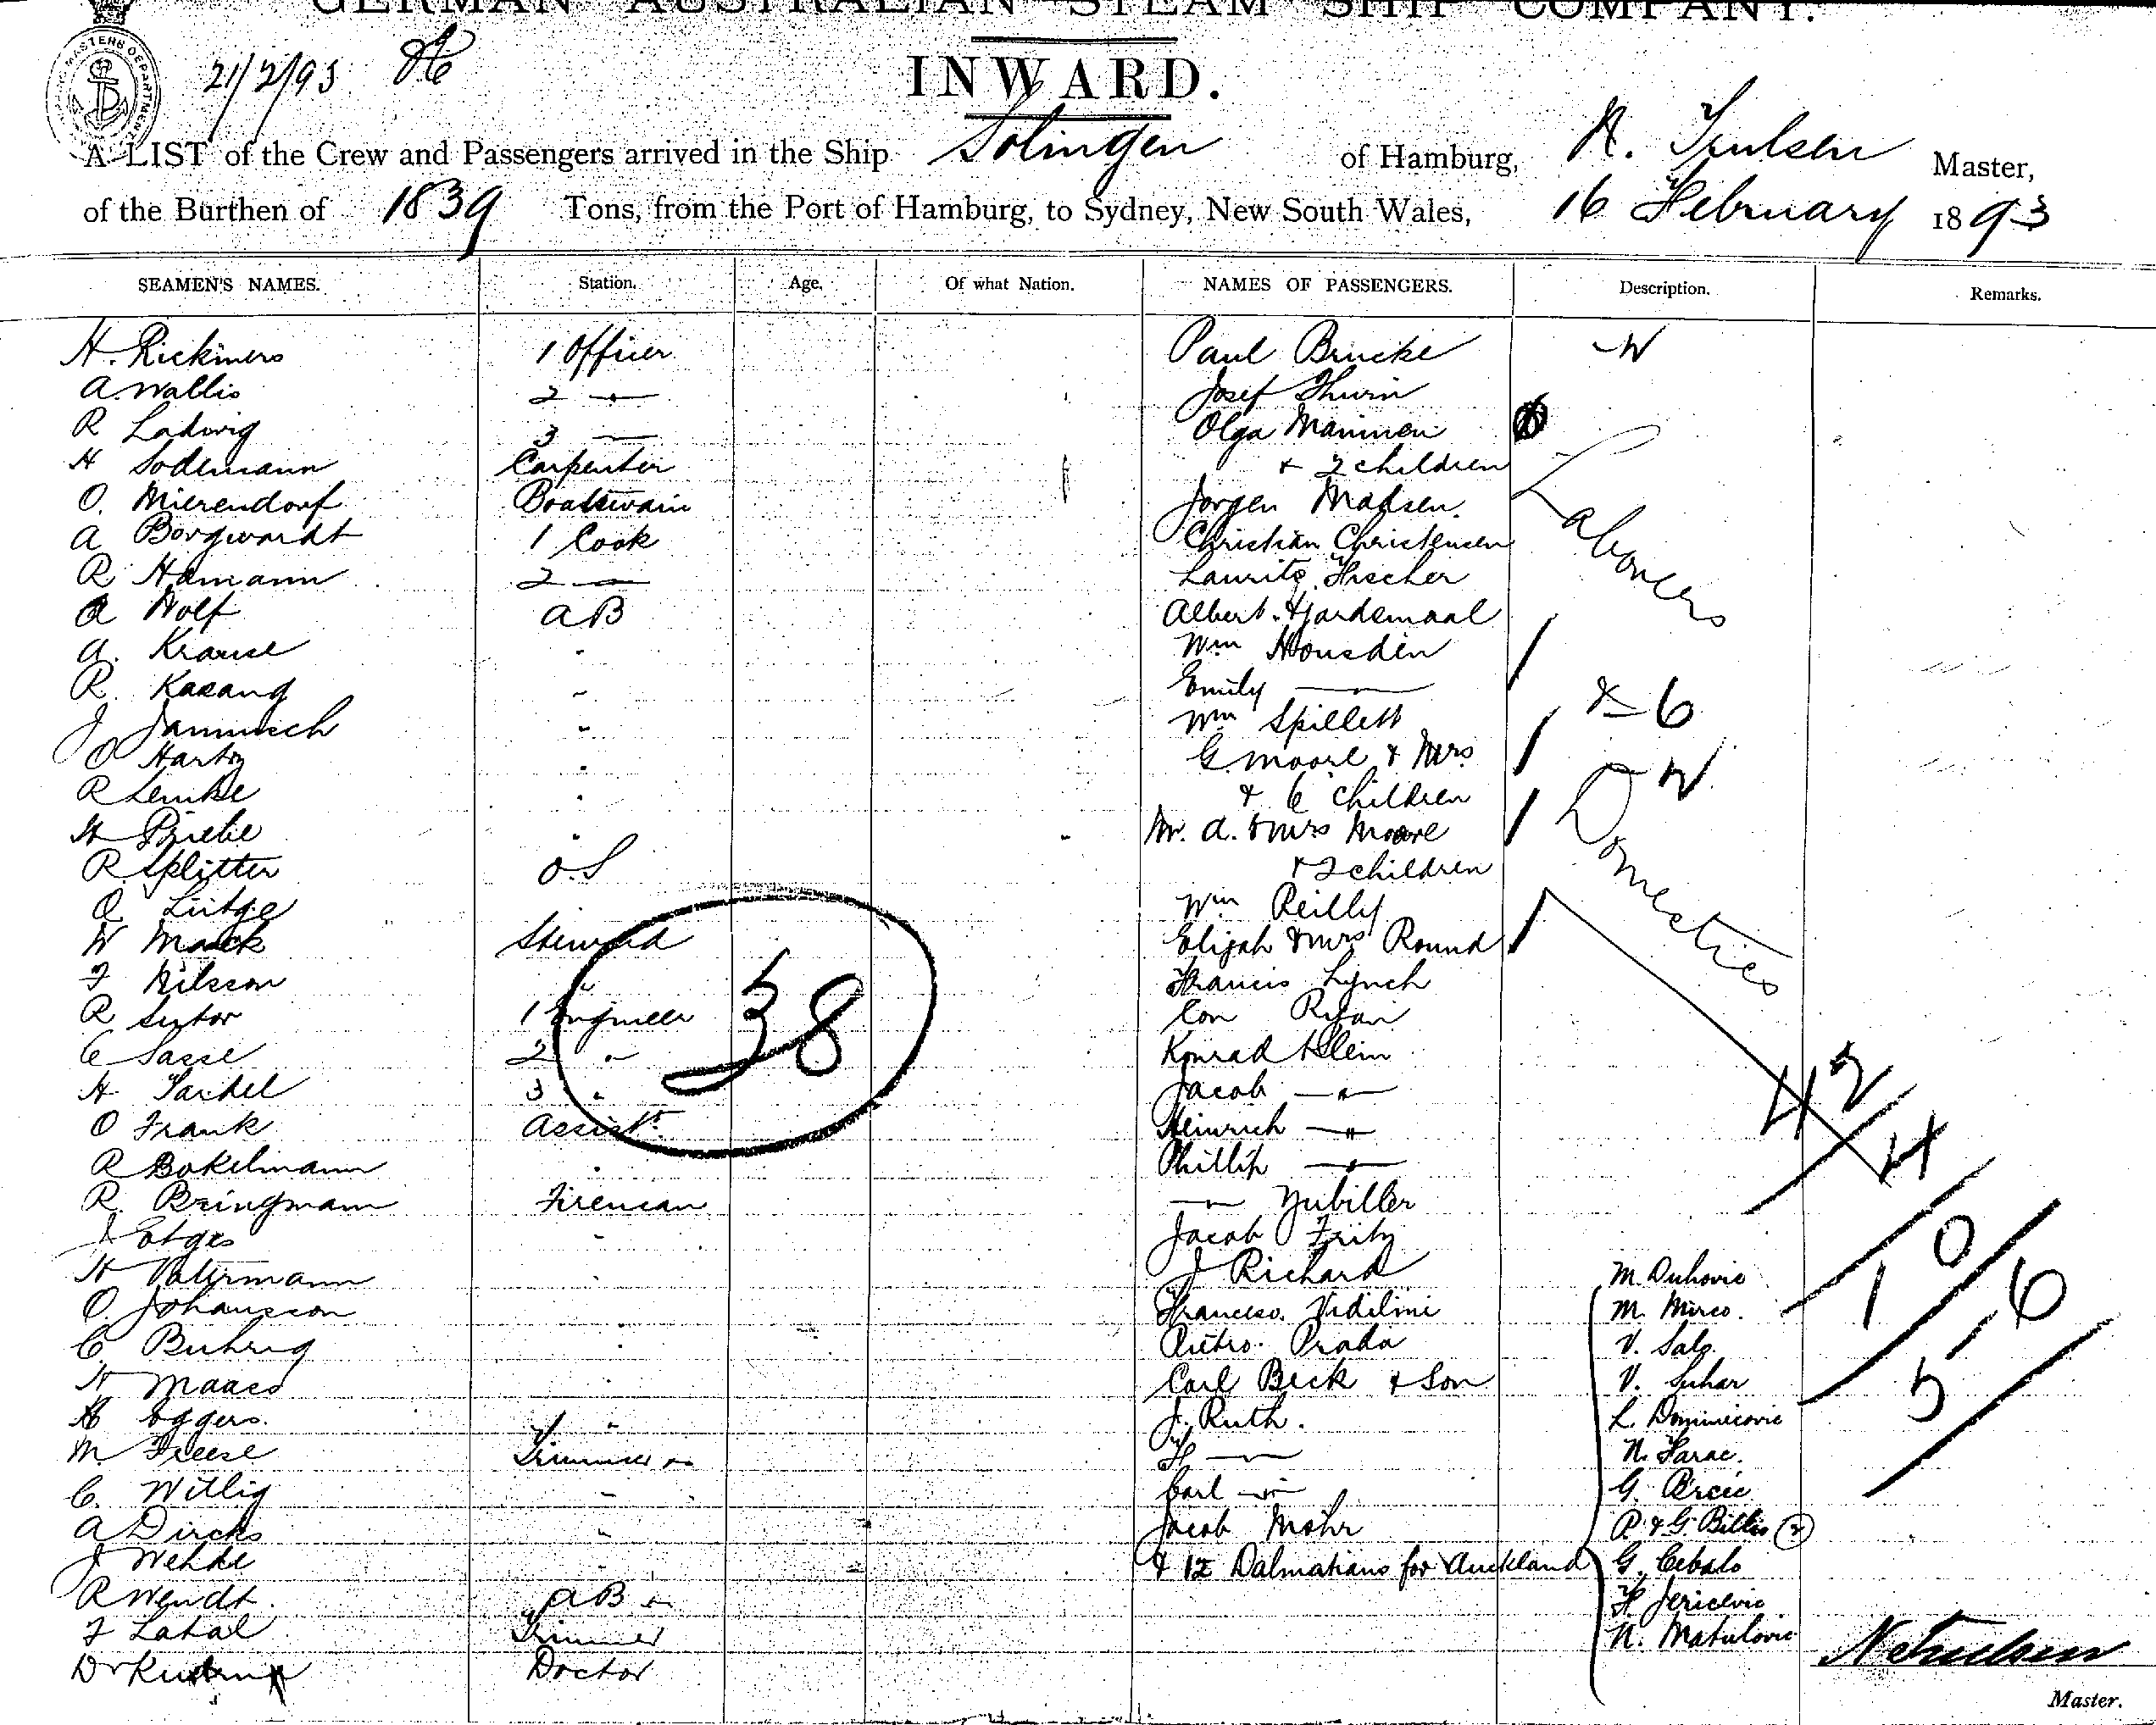 GERMAN AUSTRALIAN STEAM SHIP COMPANY.
21/2/93
INWARD.
A LIST of the Crew and Passengers arrived in the Ship Solingen of Hamburg, Master,
of the Burthen of 1839 Tons, from the Port of Hamburg, to Sydney, New South Wales, 16 February 1893
SEAMEN'S NAMES. Station. Age. Of what Nation. NAMES OF PASSENGERS. Description. Remarks.
H. Rickmers 1 Officer Paul Brucke
A. Wallis 2 Josef Thurin
R Ladwig 3 Olga
H Sodemann Carpenter + 2 children
O. Mierendorf Boatswain Jorgen Madsen.
A Borgwardt 1 Cook Christian Christensen
R Hamann 2 Laurits Fischer
A Wolf AB Albert
A. Krause Wm Housden
R. Kasang Emily
J Wm Spillett
O Hartz G. Moore & Mrs
R Lemke & 6 children
H Priebe Mr. A. & Mrs Moore
R. Splitter O.S + 2 children
O Lütge Wm Reilly
W Mack Steward Elijah & Mrs Round
F Nilsson Francis Lynch
R Sutor 1 Engineer Con Ryan
C Sasse 2 Konrad Klein
H 3 Jacob
O Frank Assist. Heinrich
R Bokelmann Phillip
R. Bringmann Fireman Zubiller
J Etges Jacob Fritz
H J Richard M. Duhovic
O. Johansson Vidilini M. Mirco.
C Buhring Pietro Prada
H Maass Carl Beck & Son V. Suhar
H Eggers. J. Ruth. L. Dominicovic
M Freese Trimmer N. Farac.
C. Witlig Carl G. Bercic
A Dircks Jacob Mohr P. & G. Billis (2)
J Wehke & 12 Dalmatians for Auckland G. Cebalo
R Wendt. AB Jericevic
F Latal Trimmer N. Matulovic
Dr Doctor
Labourers
& 6
Domestics
38
42
4
10
56
Master.